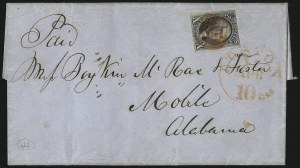 Paid
Mess Boykin McRae & Foster
Mobile
Alabama
10